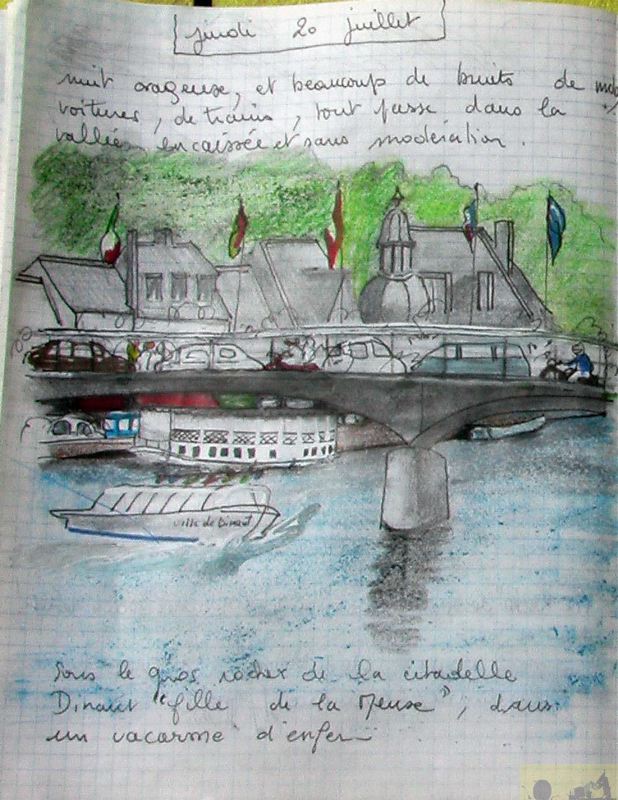 jeudi 20 juillet
nuit orageuse, et beaucoup de bruits de
voitures, de trains, tout passe dans la
vallée encaissée et sans modération.
ville de Dinant
sous le gros rocher de la citadelle
Dinant "fille de la Meuse", dans
un vacarme d'enfer